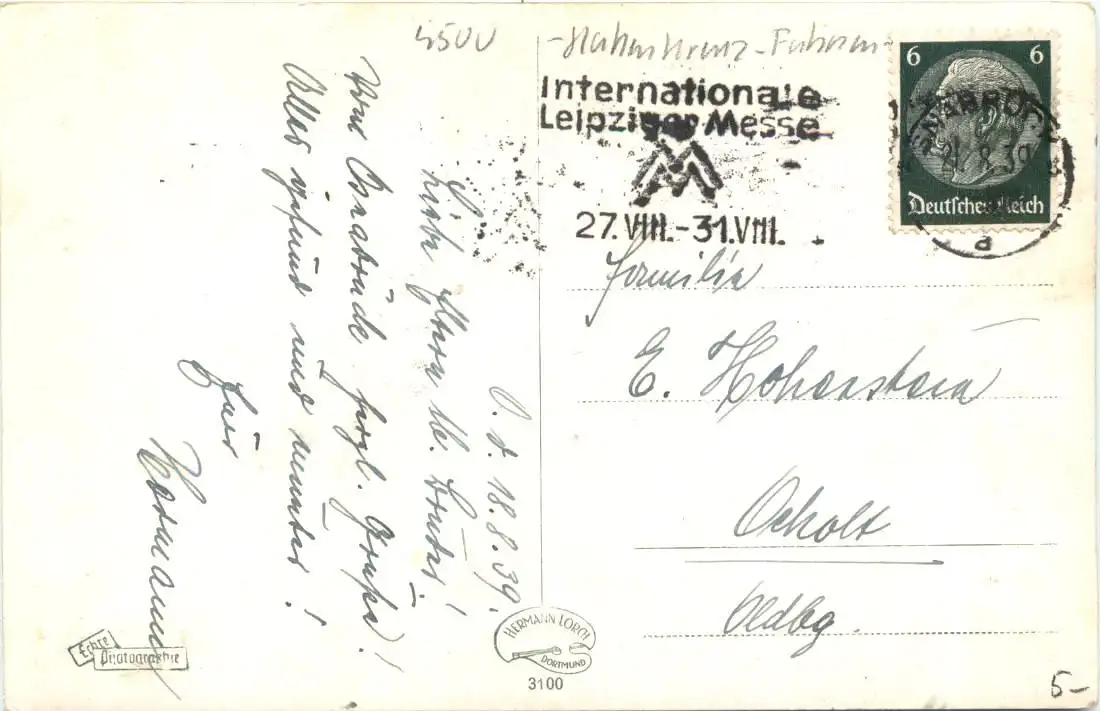 4500
-Hakenkreuz-Fahnen-
Internationale
Leipziger Messe
M
27.VIII.-31.VIII.
6 6
Deutsches Reich
OSNABRÜCK
21.8.39
a
O. d. 18.8.39.
Liebe Eltern u. Bruder!
Von Osnabrück herzl. Grüße!
Alles gesund und munter!
Euer
Hermann
Familie
E. Hohenstein
Ocholt
Oldbg.
Echte
Photographie
HERMANN LORCH
DORTMUND
3100
5-